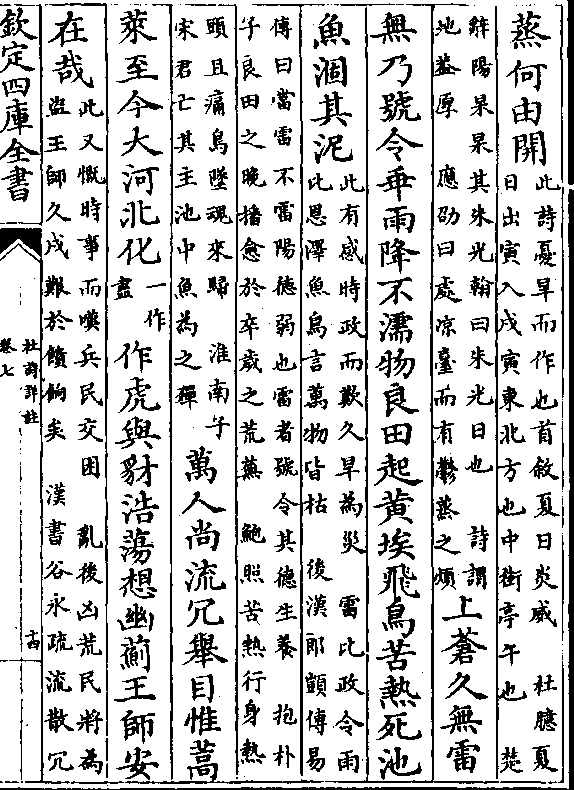 蒸何由開
此詩憂旱而作也首敘夏日炎威　杜臆夏
日出寅入戌寅東北方也中街亭午也　楚
辭陽杲杲其朱光翰曰朱光日也　詩謂
地蓋厚　應劭曰處凉臺而有鬱蒸之煩
上蒼久無雷
無乃號令乖雨降不濡物良田起黄埃飛鳥苦熱死池
魚涸其泥
此有感時政而歎久旱為災　雷比政令雨
比恩澤魚鳥言萬物皆枯　後漢郎顗傳易
傳曰當雷不雷陽德弱也雷者號令其德生養　抱朴
子良田之晚播愈於卒歲之荒蕪　鮑照苦熱行身熱
頭且痛鳥墮魂來歸　淮南子
宋君亡其主池中魚為之殫
萬人尚流冗舉目惟蒿
萊至今大河北化
一作
盡
作虎與豺浩蕩想幽薊王師安
在哉
此又慨時事而嘆兵民交困　亂後凶荒民將為
盜王師久戍艱於饋餉矣　漢書谷永疏流散冗
欽定四庫全書
杜詩詳註
卷七
十四